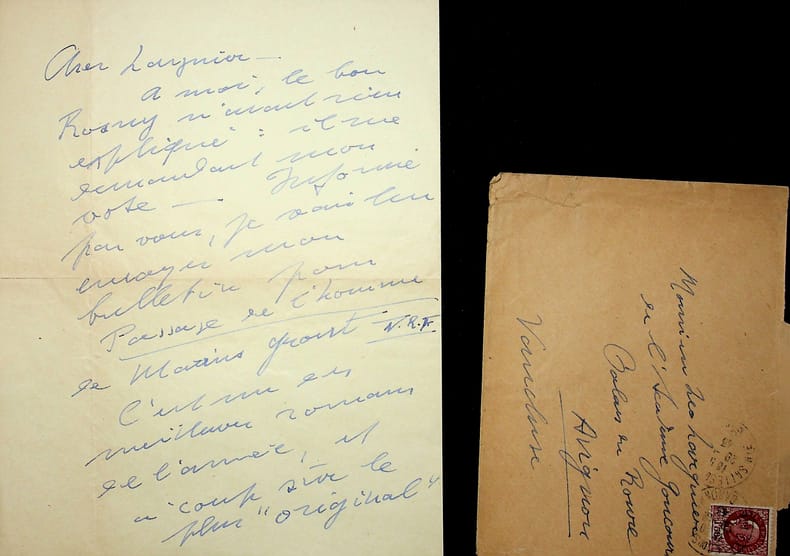 Cher Larguier —
A moi, le bon
Rosny n'avait rien
expliqué : il me
demandait mon
vote — Informé
par vous, je vais lui
envoyer mon
bulletin pour
Passage de l'homme
de Marius Grout N.R.F.
C'est un des
meilleurs romans
de l'année, et
à coup sûr le
plus "original"
Monsieur Léo Larguier
de l'Académie Goncourt
Palais du Roure
Avignon
Vaucluse